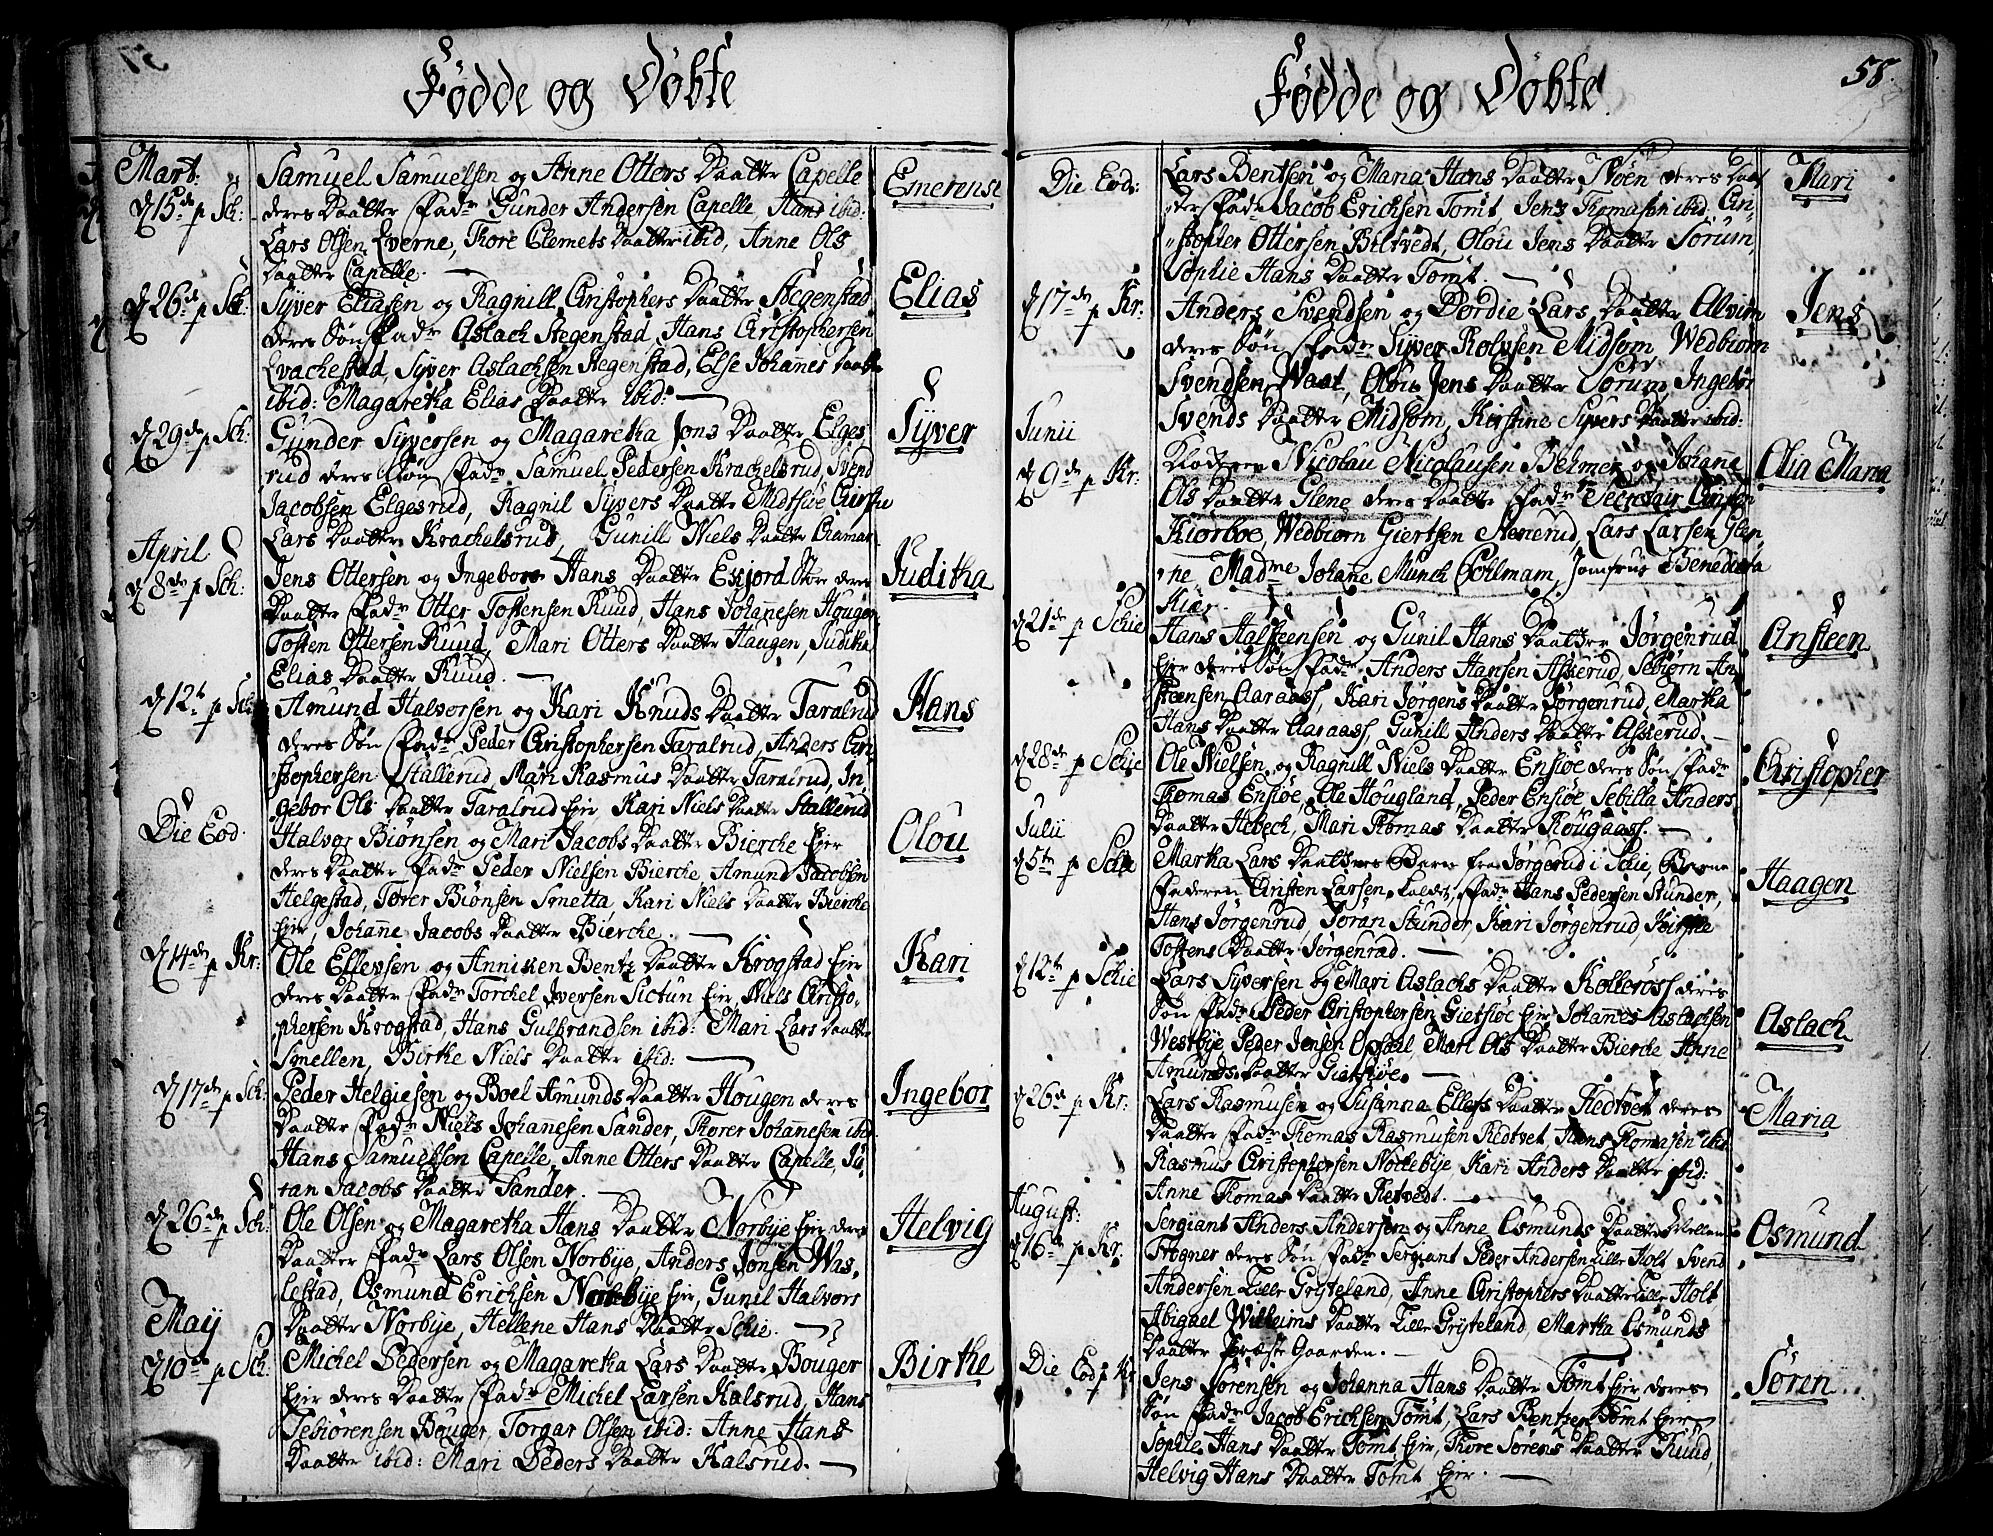 Fødde og Døbte
Mart:
d 15de p Sch:
Samuel Samuelsen og Anne Otters Daatter Capelle
deres Daatter Fadr Gunder Andersen Capelle, Hans ibid.
Lars Olsen Everne, Thore Clemets Daatter ibid, Anne Ols
Daatter Capelle.
Emerense
d 26de p Sch:
Syver Eliasen og Ragnill Christophers Daatter Stegenstad
deres Søn Fadr Aslach Stegenstad, Hans Christophersen
Qvachestad, Syver Aslachsen Stegenstad, Else Johannes Daatter
ibid: Magaretha Elias Daatter ibid:
Elias
d 29de p Sch:
Gunder Syversen og Magaretha Jons Daatter Elges
rud deres Søn Fadr Samuel Pedersen Krachelsrud, Svend
Jacobsen Elgesrud, Ragnil Syvers Daatter Midtsiøe
Lars Daatter Krachelsrud, Gunill Niels Daatter
Syver
April
d 8de p Sch:
Jens Ottersen og Ingebor Hans Daatter Eskjord Store deres
Daatter Fadr Otter Tostensen Ruud, Hans Johannesen Hougen,
Tosten Ottersen Ruud, Mari Otters Daatter Haugen, Juditha
Elias Daatter Ruud.
Juditha
d 12te p Sch:
Amund Halvorsen og Kari Knuds Daatter Taralrud
deres Søn Fadr Peder Christophersen Taralrud, Anders Chri-
stophersen Stallerud, Mari Rasmus Daatter Taralrud, In
gebor Ols Daatter Taralrud Eier, Kari Niels Daatter Stallerud
Hans
Die Eod.
Halvor Biønsen og Mari Jacobs Daatter Bierche Eier
deres Daatter Fadr Peder Nielsen Bierche, Amund Jacobsen
Helgestad, Tører Biønsen Smetta Kari Niels Daatter Bierche
Eier, Johanne Jacobs Daatter Bierche.
Olou
d 14de p Kr:
Ole Ellevsen og Anniken Bentz Daatter Krogstad Eier
deres Daatter Fadr Torchel Iversen Sictun Eier, Niels Christo-
phersen Krogstad, Hans Gulbrandsen ibid: Mari Lars Daatter
Smellen, Birthe Niels Daatter ibid:
Kari
d 17de p Sch:
Peder Helgiesen og Boel Amunds Daatter Hougen deres
Daatter Fadr Niels Johannesen Sander, Thorer Johannesen ibid.
Hans Samuelsen Capelle, Anne Otters Daatter Capelle, Jø
ran Jacobs Daatter Sander.
Ingebor
d 26de p Sch:
Ole Olsen og Magaretha Hans Daatter Norbye Eier deres
Daatter Fadr Lars Olsen Norbye, Anders Jonsen Was,
lestad, Osmund Erichsen Norbye Eier, Gunil Halvors
Daatter Norbye, Hellene Hans Daatter Schie.
Helvig
May
d 10de p Sch:
Michel Pedersen og Magaretha Lars Daatter Bouger
Eier deres Daatter Fadr Michel Larsen Kalsrud, Hans
Tebiørensen Bouger, Torgar Olsen ibid: Anne Hans
Daatter ibid: Mari Peders Daatter Kalsrud.
Birthe
Fødde og Døbte
58.
Die Eod:
Lars Bentsen og Maria Hans Daatter Moen deres Daat
ter Fadr Jacob Erichsen Tomt, Jens Thomassen ibid, Chri-
stopher Ottersen Biltvedt, Olou Jens Daatter Sørum,
Sophie Hans Daatter Tomt.
Mari
d 17de p Kr:
Anders Svendsen og Dordie Lars Daatter Alvim
deres Søn Fadr Syver Rolvsen Midsom, Wedbiørn
Svendsen Waat, Olou Jens Daatter Sørum, Ingebor
Svends Daatter Midsom, Kirstine Syvers Daatter ibid:
Jens
Junii
d 9de p Kr:
Klocheren Nicolau Nicolausen Behmer og Johane
Ols Daatter Glene deres Daatter Fadr Secretair
Kiørboe, Wedbiørn Giertsen Nererud, Lars Larsen Glen
ne, Madme Johane Munch Pohlmam, Jomfrue Benedicta
Kiær.
Olia Maria
d 21de p Schie
Hans Halsteensen og Gunil Hans Daatter Jørgenrud
Eier deres Søn Fadr Anders Hansen Askerud, Sebiørn An
steensen Aaraass, Kari Jørgens Daatter Jørgenrud, Martha
Hans Daatter Aaraass, Gunill Anders Daatter Askerud.
Ansteen
d 28de p Schie
Ole Nielsen og Ragnill Niels Daatter Ensiøe deres Søn Fadr
Thomas Ensiøe, Ole Hougland, Peder Ensiøe Sebilla Anders
Daatter Hebech, Mari Thomas Daatter Rougaass.
Christopher
Julii
d 5te p Schie
Martha Lars Daatters Barn fra Jørgerud i Schie, Barne
Faderen Christen Larsen Kaldet, Fadr Hans Pedersen Stunder,
Hans Jørgenrud, Jøran Stunder, Kari Jørgenrud, Kirstie
Tostens Daatter Jørgenrud.
Haagen
d 12te p Schie
Lars Syversen og Mari Aslachs Daatter Kolleross deres
Søn Fadr Peder Christophersen Gietsiøe Eier Johannes Aslachsen
Westbye Peder Jensen Opsal Mari Ols Daatter Bierche Anne
Amunds Daatter Gietsiøe.
Aslach
d 26de p Kr:
Lars Rasmusen og Susanna Ellefs Daatter Redtvet deres
Daatter Fadr Thomas Rasmusen Redtvet Hans Thomasen ibid
Rasmus Christophersen Nollebye Kari Anders Daatter ibid:
Anne Thomas Daatter Retvedt.
Maria
August:
d 16de p Kr.
Sergiant Anders Andersen og Anne Osmunds Daatter Mellem
Frogner deres Søn Fadr Sergiant Peder Andersen Lille Holt Svend
Andersen Lille Gryteland, Anne Christophers Daatter Lille Holt
Abigael Wilhelms Daatter Lille Gryteland, Martha Osmunds
Daatter Præste Gaarden.
Osmund
Die Eod p Kr
Jens Sørensen og Johanna Hans Daatter Tomt Eier deres
Søn Fadr Jacob Erichsen Tomt, Lars Bentsen Tomt Eier
Sophie Hans Daatter Tomt Eier, Thore Sørens Daatter Ruud,
Helvig Hans Daatter Tomt Eier.
Søren